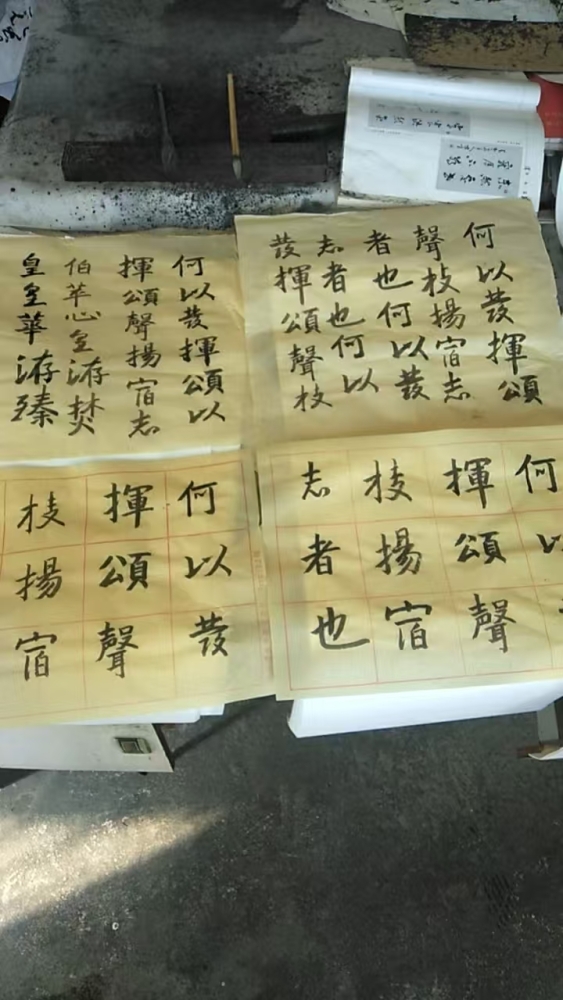 何以發揮頌
聲枝揚宿志
者也何以發
志者也何以
發揮頌聲枝
何以發揮頌以
揮頌聲揚宿志
伯華心皇洊焚
皇皇華洊臻
何以
揮頌聲
枝揚宿
志者也
何以發
揮頌聲
枝揚宿